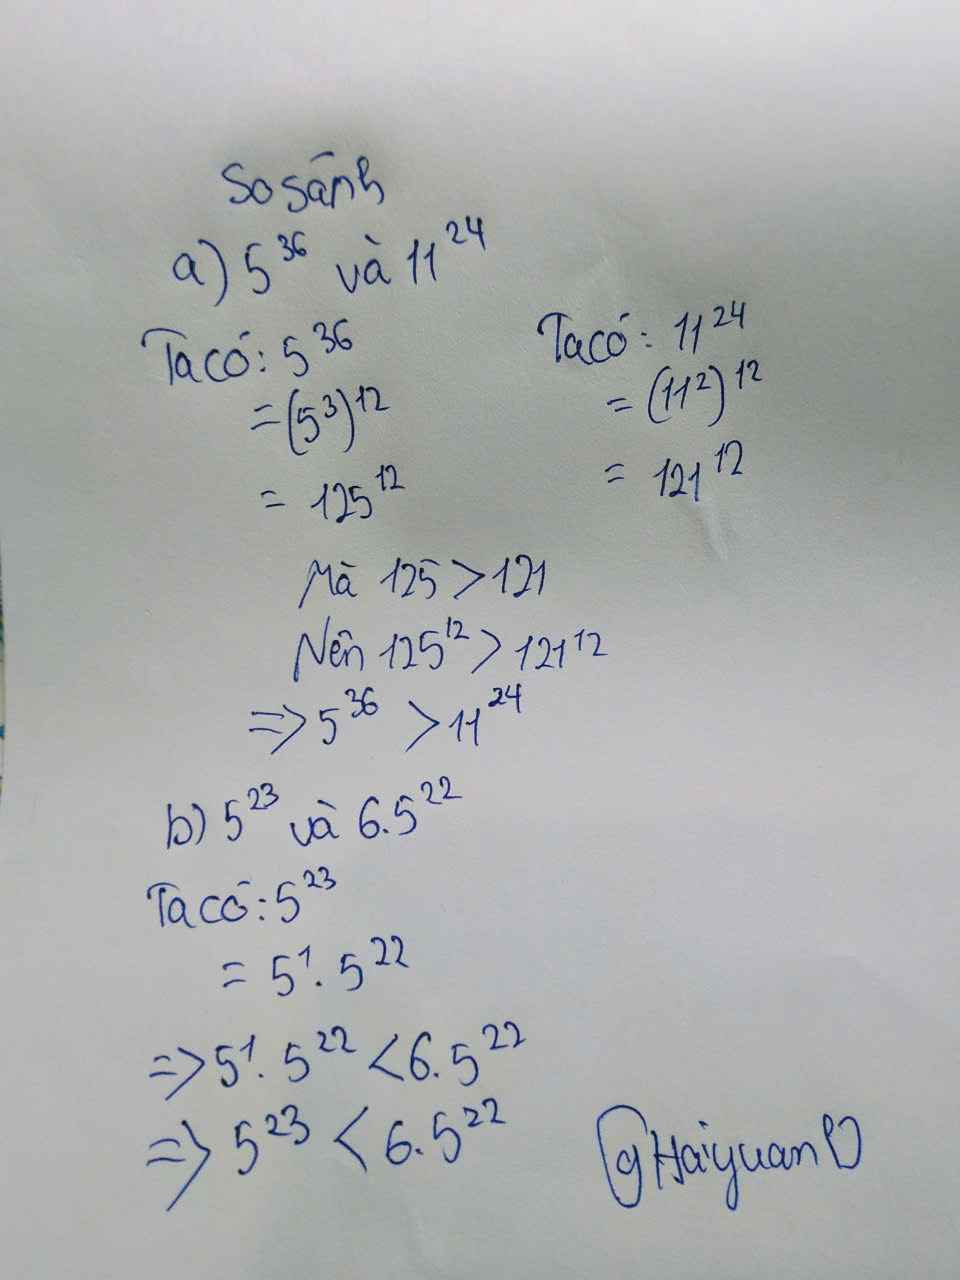 So sánh
a) 5^36 và 11^24
Ta có: 5^36
= (5^3)^12
= 125^12
Ta có: 11^24
= (11^2)^12
= 121^12
Mà 125 > 121
Nên 125^12 > 121^12
=> 5^36 > 11^24
b) 5^23 và 6.5^22
Ta có: 5^23
= 5^1. 5^22
=> 5^1. 5^22 < 6.5^22
=> 5^23 < 6.5^22